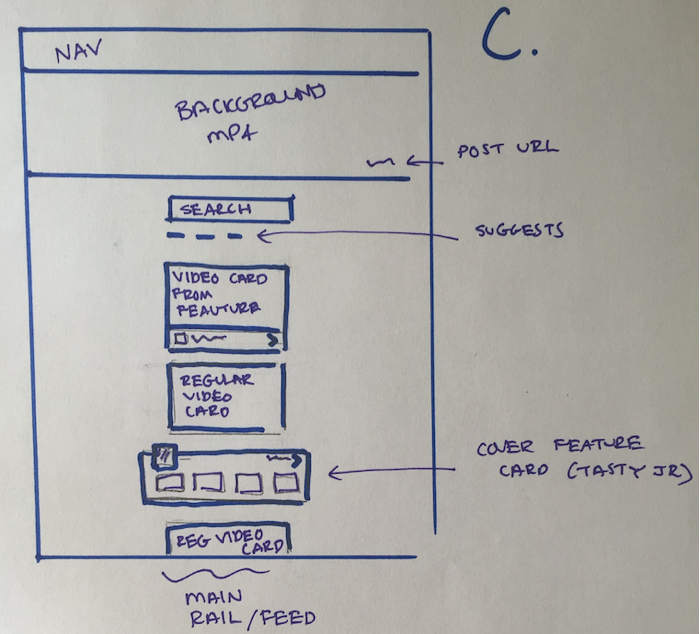 C.
NAV
BACKGROUND
MP4
POST URL
SEARCH
SUGGESTS
VIDEO CARD
FROM
FEAUTURE
REGULAR
VIDEO
CARD
COVER FEATURE
CARD (TASTY JR)
REG VIDEO
CARD
MAIN
RAIL/FEED